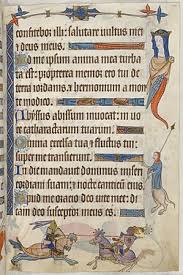 confitebor illi: salutare vultus mei
& deus meus.
Ad me ipsum anima mea turba
ta est: propterea memor ero tui de
terra iordanis & hermonium a mon
te modico
Abissus abissum invocat: in voce
cataractarum tuarum:
Omnia excelsa tua & fluctus tui:
super me transierunt.
In die mandavit dominus mise
ricordiam suam: & nocte canticum eius
Apud me oratio deo vite mee: di
cam deo susceptor meus es